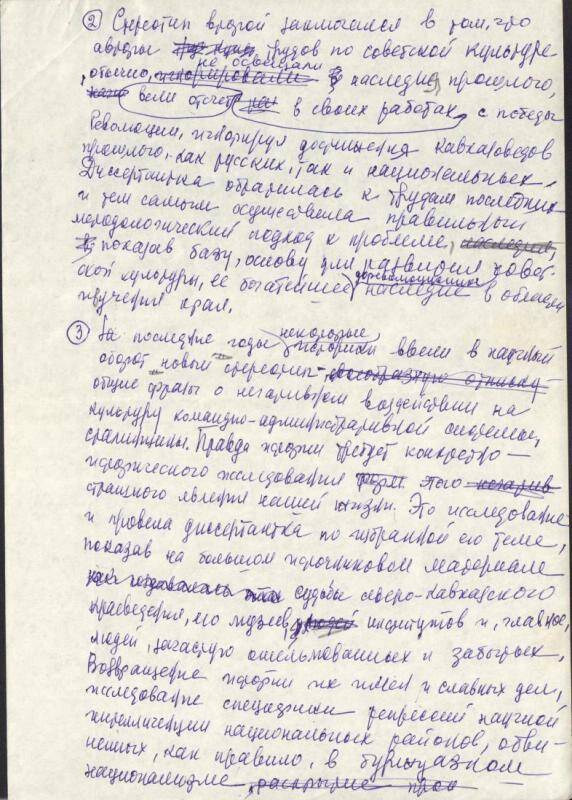 ② Стереотип второй заключался в том, что
авторы трудов по советской культуре
обычно, не освещали наследия прошлого,
вели отсчет в своих работах с победы
Революции, игнорируя достижения кавказоведов
прошлого, как русских, так и национальных.
Диссертантка обратилась к трудам последних
и тем самым осуществила правильный
методологический подход к проблеме, последнее,
показав базу, основу для развития совет-
ской культуры, ее богатейшее дореволюционное наследие в области
изучения края.
③ За последние годы некоторые историки ввели в научный
оборот новый стереотип –
общие фразы о негативном воздействии на
культуру командно-административной системы,
сталинщины. Правда истории требует конкретно –
исторического исследования этого негатив
страшного явления нашей жизни. Это исследование
и провела диссертантка по избранной ею теме,
показав на большом источниковом материале
как создавались судьбы северо-кавказского
краеведения, его музеев, людей институтов и, главное,
людей, зачастую ошельмованных и забытых.
Возвращение истории их имен и славных дел,
исследование специфики репрессий научной
интеллигенции национальных районов, обви-
ненных, как правило, в буржуазном
национализме, раскрытие